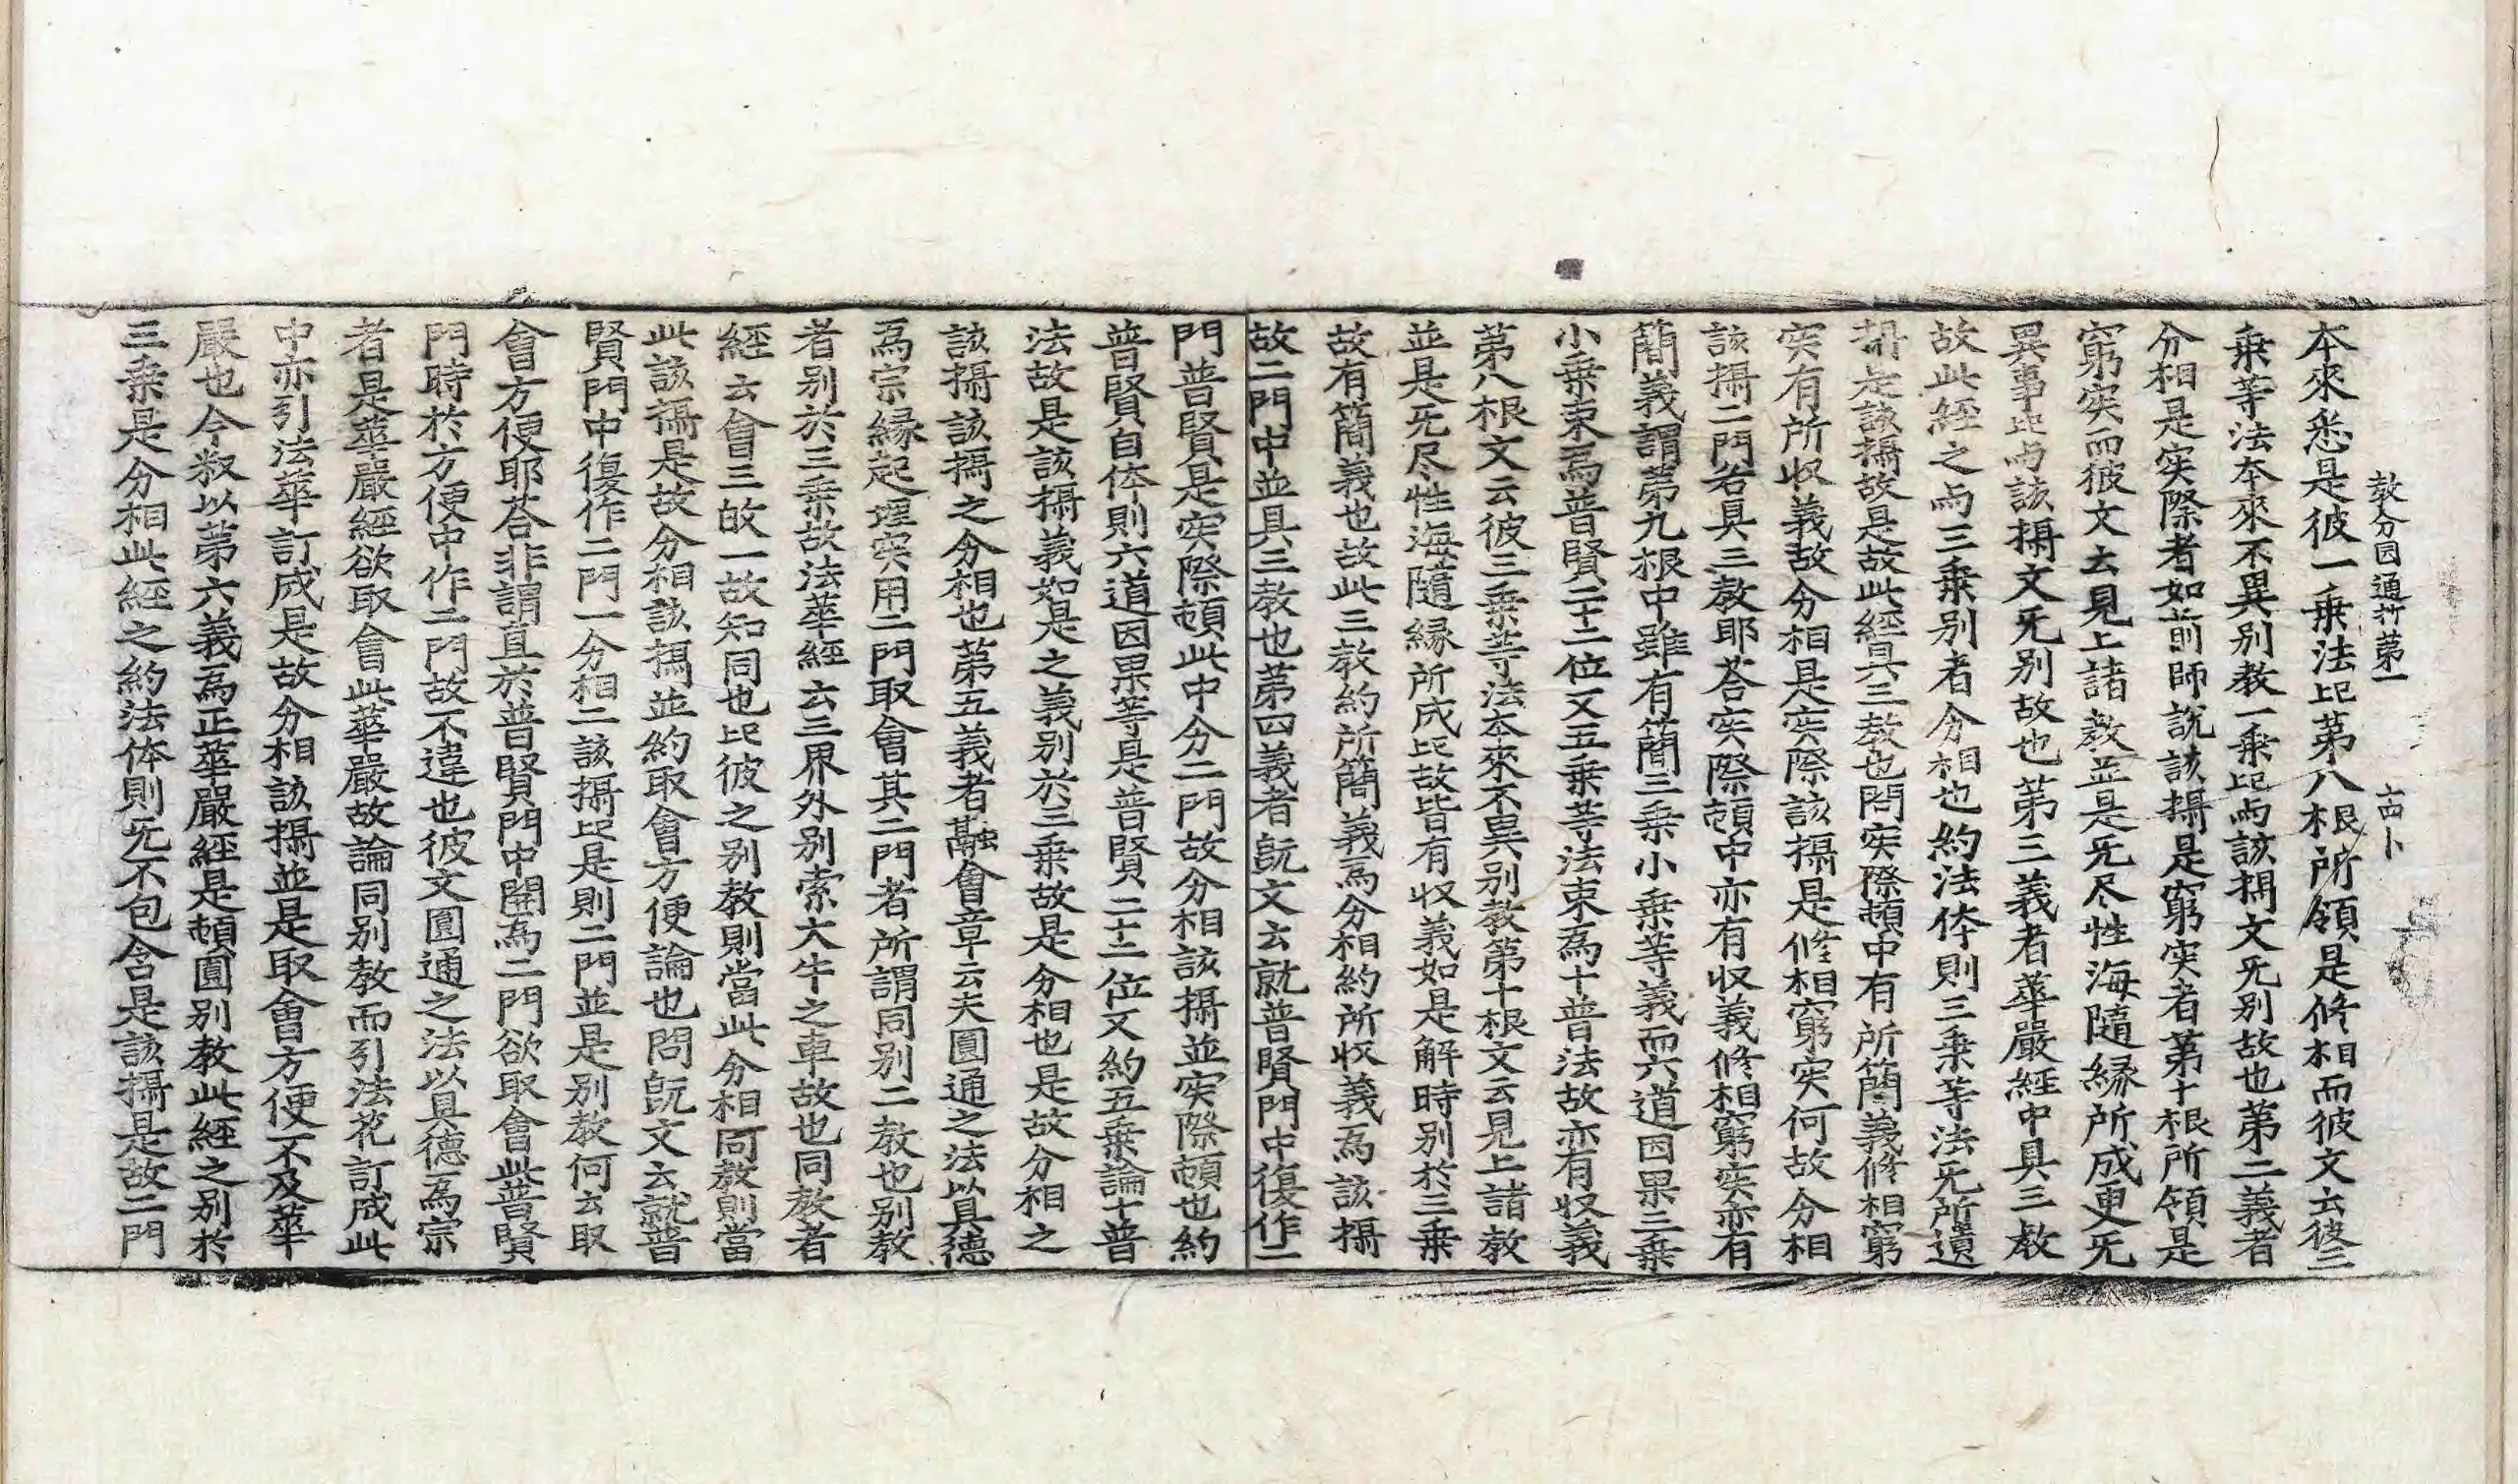 教分圓通抄第一
十四
本來悉是彼一乗法㐰第八根所領是修相而彼文云彼三
乗等法本來不異别教一乗㐰与該攝文旡别故也第二義者
分相是实際者如前師説該攝是窮实者第十根所領是
窮实而彼文云見上諸教並是旡尽性海隨縁所成更旡
異事㐰与該攝文旡别故也第三義者華嚴經中具三教
故此經之与三乗别者分相也約法体則三乗等法旡所遺
攝是該攝故是故此經具三教也問实際頓中有所簡義修相窮
实有所収義故分相是实際該攝是修相窮实何故分相
該攝二門各具三教耶荅实際頓中亦有収義修相窮实亦有
簡義謂第九根中雖有簡三乗小乗等義而六道因果三乗
小乗束爲普賢二十二位又五乗等法束爲十普法故亦有収義
第八根文云彼三乗等法本來不異别教第十根文云見上諸教
並是旡尽性海隨縁所成㐰故皆有収義如是解時别於三乗
故有簡義也故此三教約所簡義爲分相約所収義爲該攝
故二門中並具三教也第四義者旣文云就普賢門中復作二
門普賢是实際頓此中分二門故分相該攝並实際頓也約
普賢自体則六道因果等是普賢二十二位又約五乗論十普
法故是該攝義如是之義别於三乗故是分相也是故分相之
該攝該攝之分相也第五義者融會章云夫圓通之法以具德
爲宗縁起理实用二門取會其二門者所謂同别二教也别教
者别於三乗故法華經云三界外别索大牛之車故也同教者
經云會三故一故知同也㐰彼之别教則當此分相同教則當
此該攝是故分相該攝並約取會方便論也問旣文云就普
賢門中復作二門一分相二該攝㐰是則二門並是别教何云取
會方便耶荅非謂直於普賢門中開爲二門欲取會此普賢
門時於方便中作二門故不違也彼文圓通之法以具德爲宗
者是華嚴經欲取會此華嚴故論同别教而引法花訂成此
中亦引法華訂成是故分相該攝並是取會方便不及華
嚴也今釈以第六義爲正華嚴經是頓圓别教此經之别於
三乗是分相此經之約法体則旡不包含是該攝是故二門